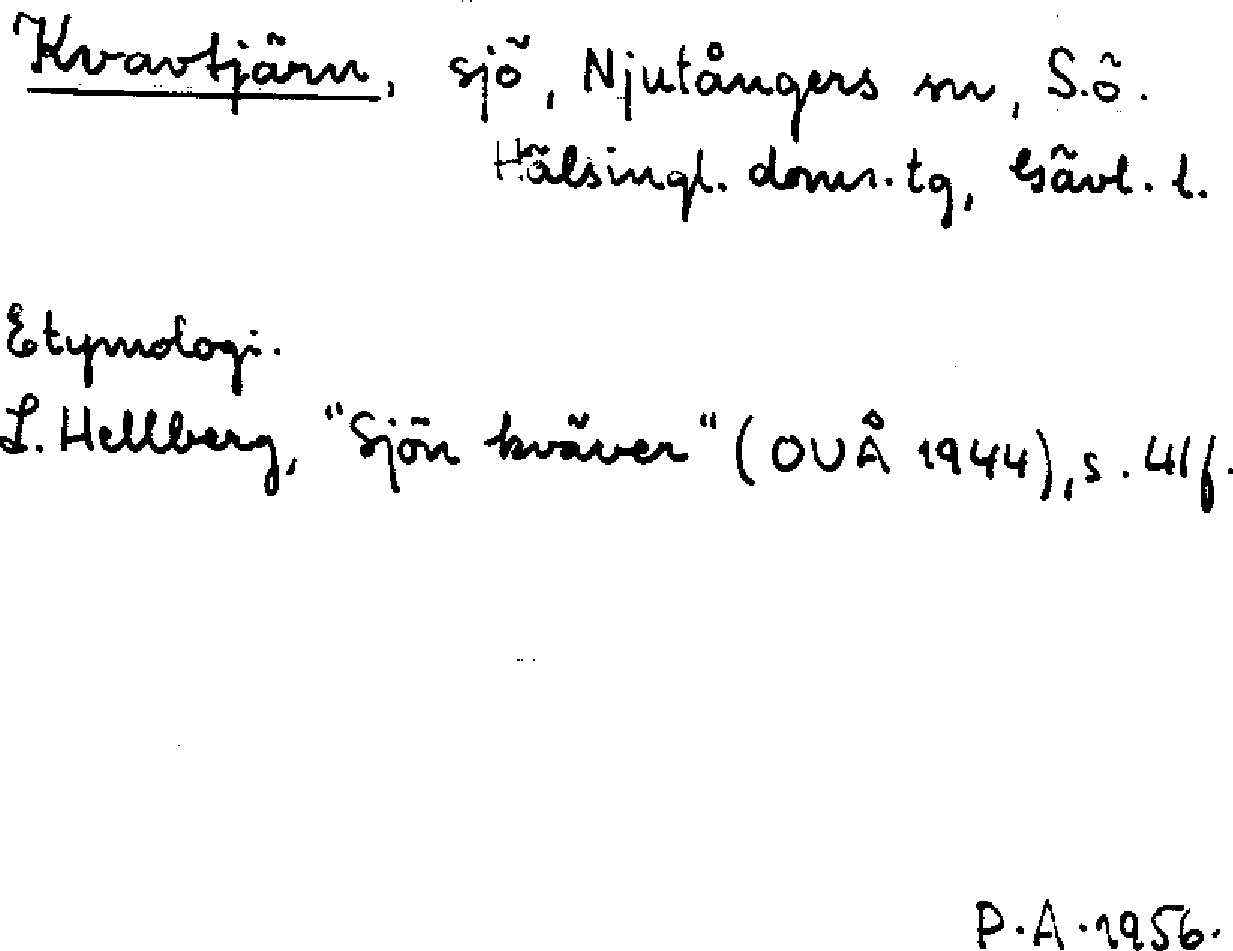 Kvavtjärn, sjö, Njutångers sn, S.ö.
Hälsingl. doms.tg, Gävl. l.
Etymologi.
L. Hellberg, "Sjön kväver" (OUÅ 1944), s. 41f.
P.A. 1956.